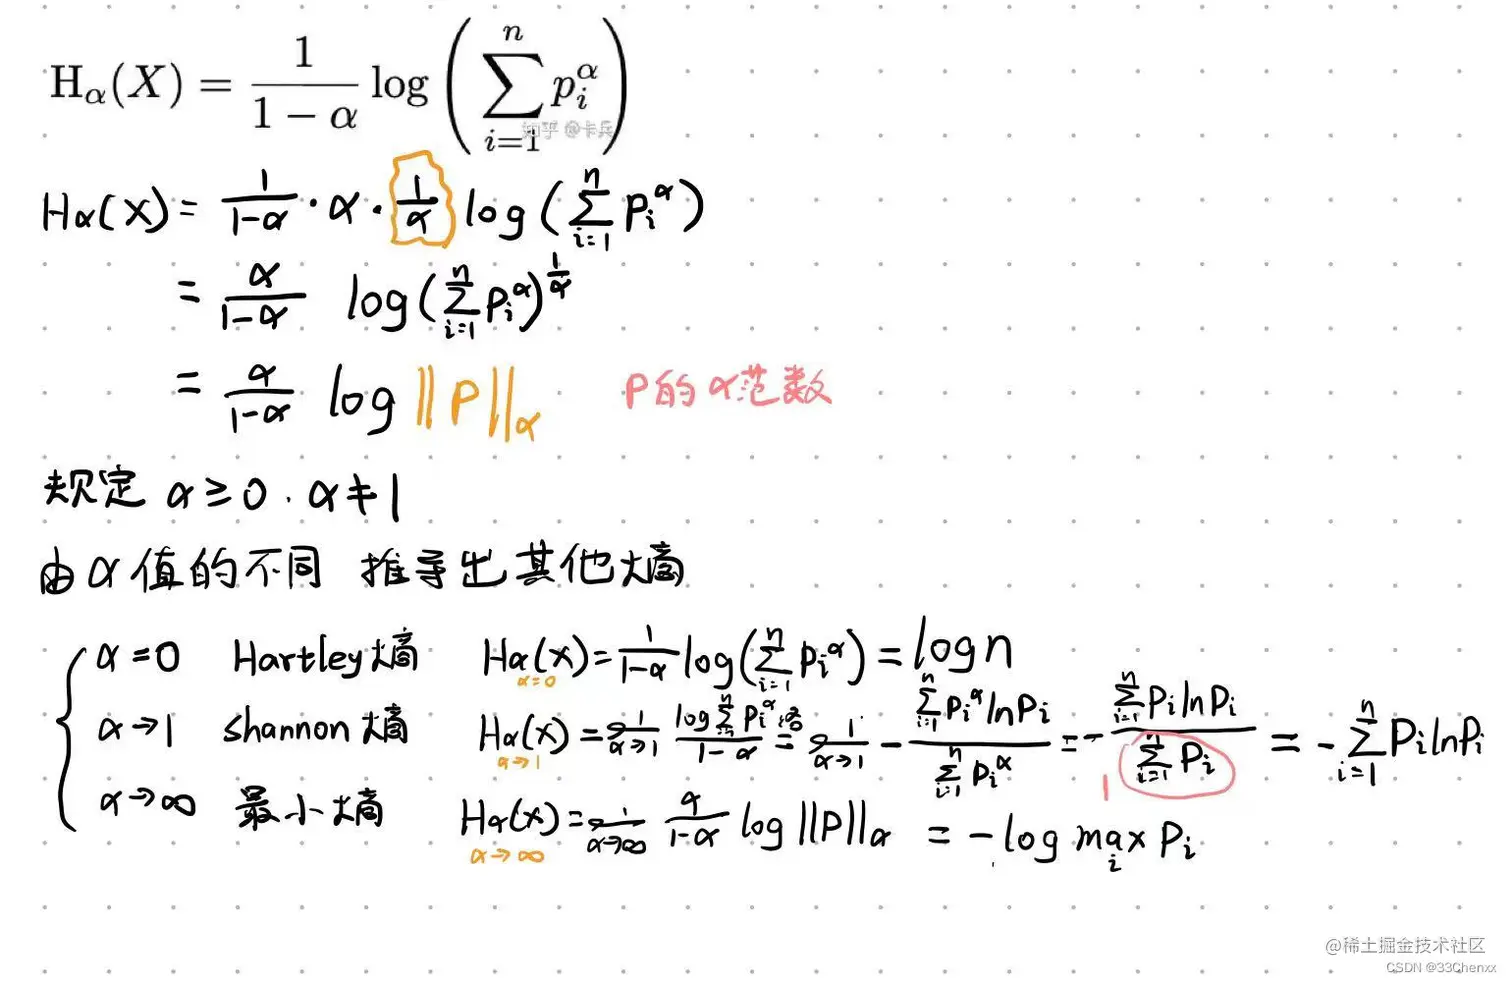 H_α(X) = \frac{1}{1-α} log ( \sum_{i=1}^{n} p_i^α )
知乎 @卡兵
H_α(X) = \frac{1}{1-α} · α · \frac{1}{α} log ( \sum_{i=1}^{n} P_i^α )
= \frac{α}{1-α} log ( \sum_{i=1}^{n} P_i^α )^{\frac{1}{α}}
= \frac{α}{1-α} log ||P||_α P的α范数
规定 α≥0. α≠1
由α值的不同 推导出其他熵
α=0 Hartley熵 H_α(X)_{α=0} = \frac{1}{1-α} log ( \sum_{i=1}^{n} P_i^α ) = log n
α→1 shannon熵 H_α(X)_{α→1} = \lim_{α→1} \frac{log \sum_{i=1}^{n} P_i^α}{1-α} 洛= \lim_{α→1} - \frac{\sum_{i=1}^{n} P_i^α ln P_i}{\sum_{i=1}^{n} P_i^α} = - \frac{\sum_{i=1}^{n} P_i ln P_i}{\sum_{i=1}^{n} P_i} 1 = - \sum_{i=1}^{n} P_i ln P_i
α→∞ 最小熵 H_α(X)_{α→∞} = \lim_{α→∞} \frac{α}{1-α} log ||P||_α = - log \max_i P_i
@稀土掘金技术社区
CSDN @33Chenxx